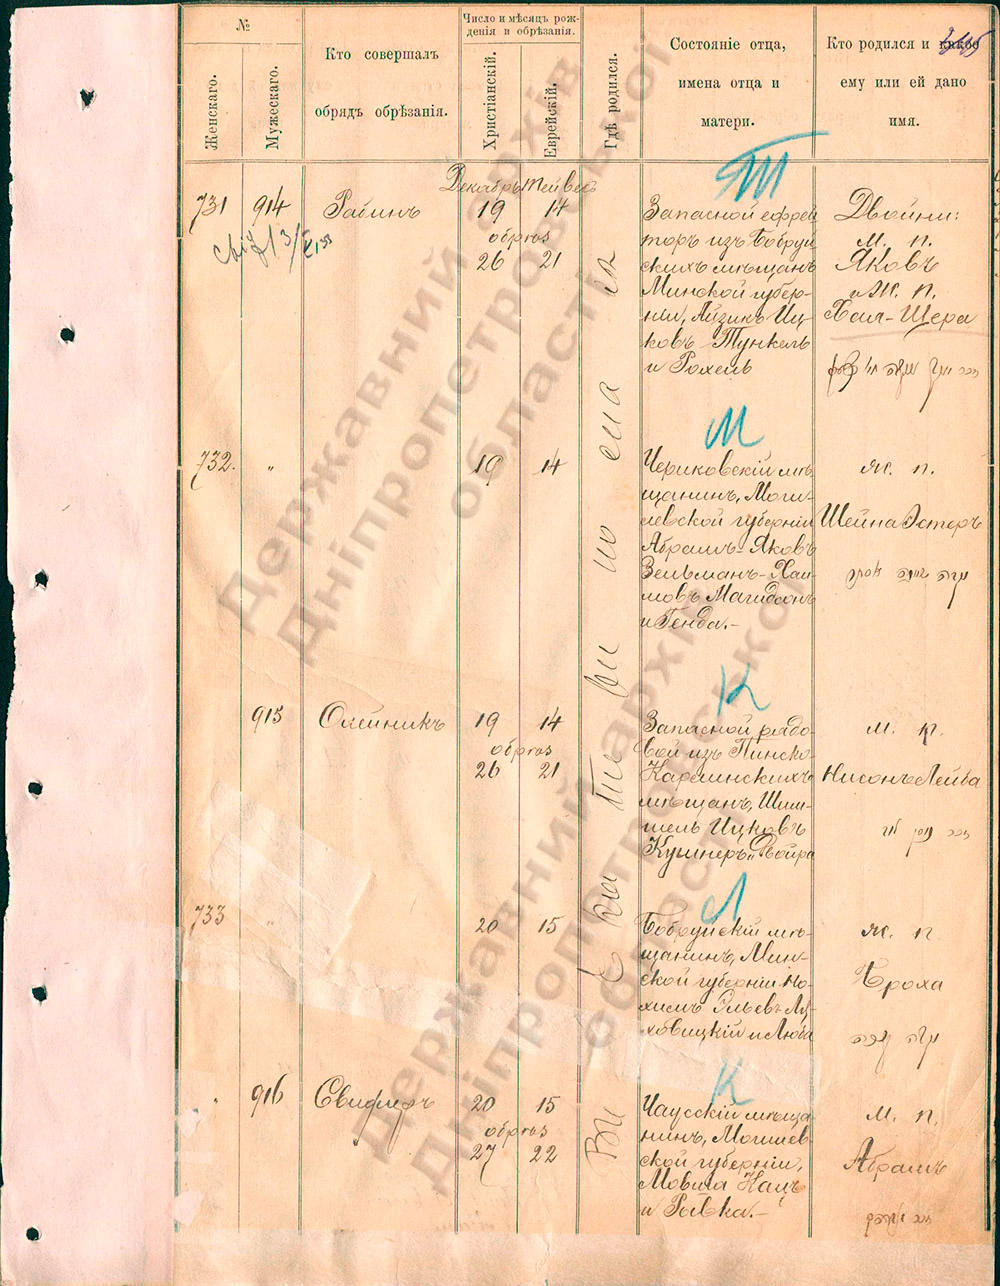 №
Женскаго.
Мужескаго.
Кто совершалъ
обрядъ обрѣзанія.
Число и мѣсяцъ рож-
денія и обрѣзанія.
Христіанскій.
Еврейскій.
Гдѣ родился.
Состояніе отца,
имена отца и
матери.
Кто родился и какое
ему или ей дано
имя.
Т
Декабрь Тейвесъ
731 914 Рабинъ 19 14
обрѣз
26 21
Запасной ефрей
торъ изъ Бобруй
скихъ мѣщанъ
Минской губер-
ніи, Айзикъ Иц-
ковъ Тункель
и Рохель
Двойни:
м. п.
Яковъ
и Ж. п.
Хая-Шера
М
732. " 19 14
Чериковскій мѣ
щанинъ, Моги-
левской губерніи
Абрамъ-Яковъ
Зельманъ-Хаи-
мовъ Магидсонъ
и Генда.-
ж. п.
Шейна Эстеръ
К
915 Олейникъ 19 14
обрѣз
26 21
Запасной рядо-
вой изъ Пинско-
Карлинскихъ
мѣщанъ, Шим-
шель Ицковъ
Кушнеръ и Двойра
м. п.
Нисонъ Лейба
Л
733 " 20 15
Бобруйскій мѣ-
щанинъ, Мин-
ской губерніи Но-
химъ Эльевъ Ля-
ховицкій и Люба
ж. п.
Броха
К
" 916 20 15
обрѣз
27 22
Чаусскій мѣща
нинъ, Могилев
ской губерніи,
Мовша Кацъ
и Ривка.-
м. п.
Абрамъ
Въ Екатеринославѣ
Державний архів
Дніпропетровської
області
Державний архів
Дніпропетровської
області